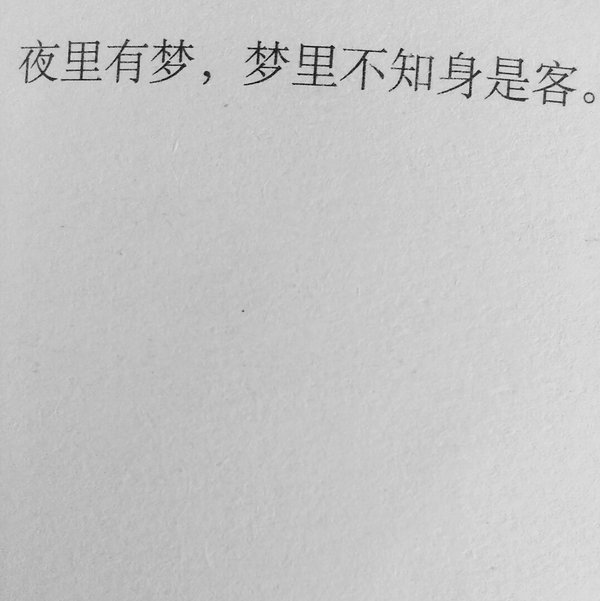 夜里有梦，梦里不知身是客。